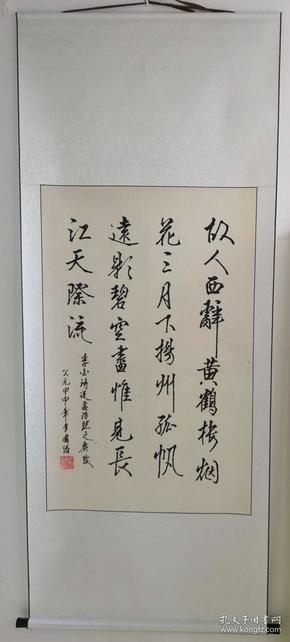 故人西辭黃鶴樓烟
花三月下揚州孤帆
遠影碧空盡惟見長
江天際流
李白詩送孟浩然之廣陵
公元甲申年
孔夫子旧书网